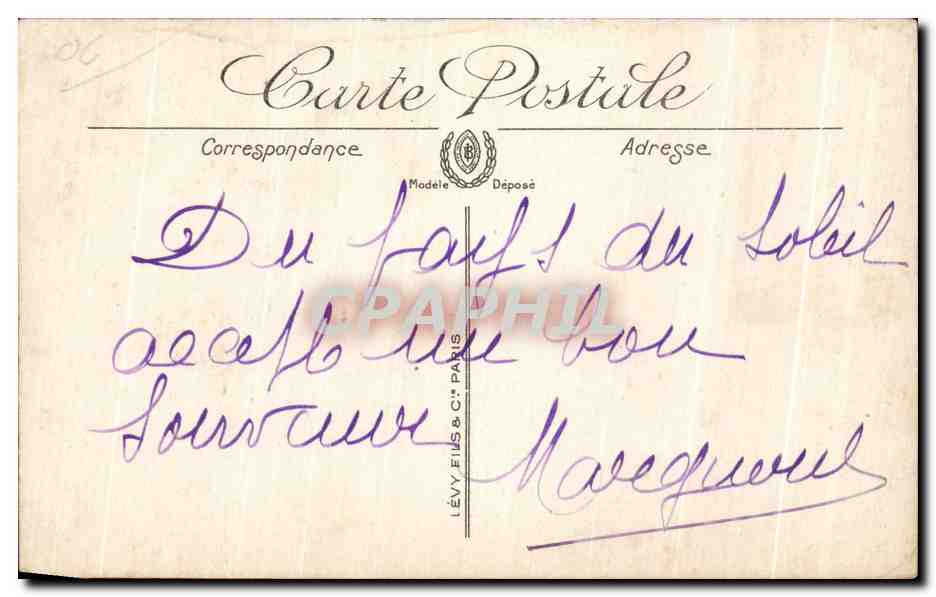 06
Carte Postale
Correspondance
Adresse
Modèle Déposé
Du pays du soleil
accepte un bon
souvenir
LÉVY FILS & Cie PARIS
CPAPHIL